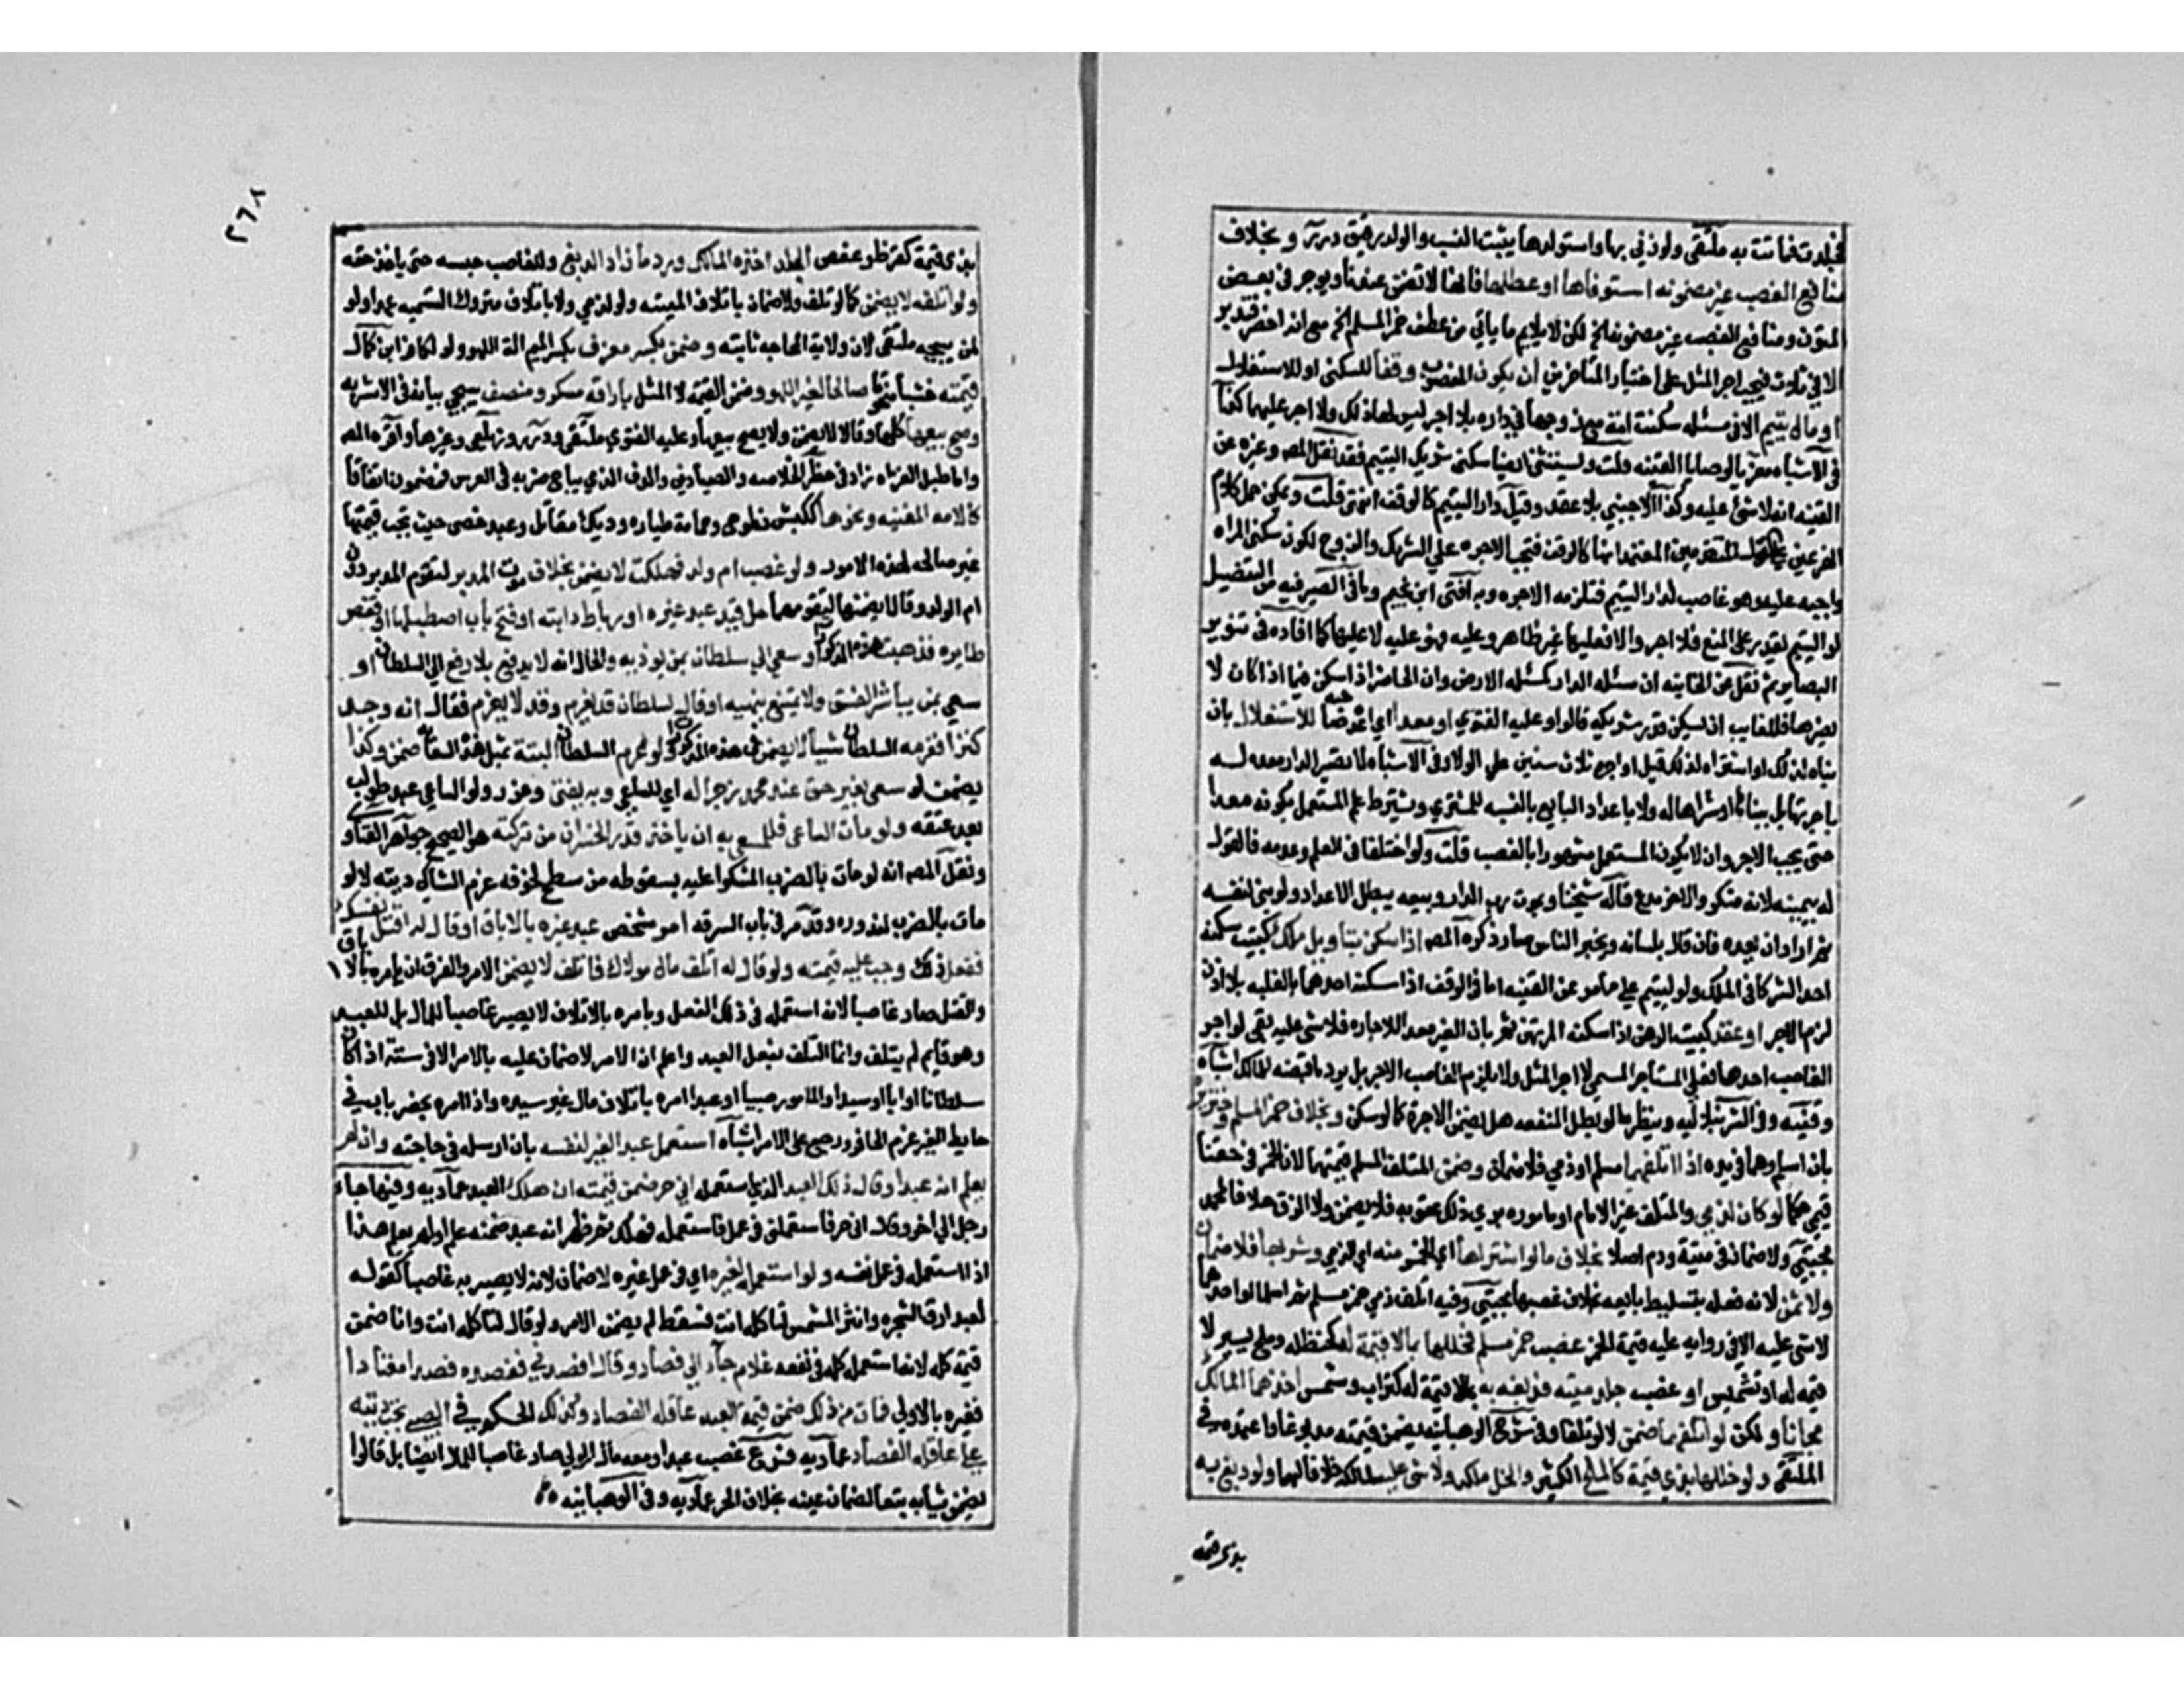 فجلدت فماتت به ملتقى ولو زني بها واستولدها يثبت النسب والولد رقيق درر و بخلاف
منافع الغصب غير مضمونه استوفاها او عطلها فانها لا تضمن عندنا ويوجد في بعض
المتون ومنافع الغصب غير مضمونه الخ لكن لا يلايم ما ياتي من عطف خمر المسلم الخ مع انه اخصر فتدبر
الا في ثلاث فيجب اجر المثل على اختيار المتاخرين ان يكون المغصوب وقفا للسكنى او للاستغلال
او مال يتيم الا في مسئله سكنت امه مع زوجها في داره بلا اجر ليس لهما ذلك ولا اجر عليهما كذا
في الاشباه معزيا لوصايا القنيه قلت ويستثنى ايضا سكنى شريك اليتيم فقد نقل المص وغيره عن
القنيه انه لا شئ عليه وكذا الاجنبي بلا عقد وقيل دار اليتيم كالوقف انتهى قلت ويمكن حمل كلام
الفرعين على قول المتقدمين المعتمد انها كالوقف فتجب الاجره على الشريك والزوج لكون سكنى المراه
واجبه عليه وهو غاصب لدار اليتيم فتلزمه الاجره وبه افتى ابن نجيم وباقي الصيرفيه من التفصيل
لو اليتيم يقدر على المنع فلا اجر والا فعليها غير ظاهر وعليه فهو عليه لا عليها كما افاده في تنوير
البصاير ثم نقل عن الخانيه ان مسئله الدار كمسئله الارض وان الحاضر اذا سكن فيما اذا كان لا
يضرها فللغايب ان يسكن قدر شريكه قالوا وعليه الفتوي او معدا اي اعرضه صاحبه للاستغلال بان
بناه لذلك او اشتراه لذلك قيل او اجره ثلاث سنين على الولا وفي الاشباه لا تصير الدار معده له
باجرتها بل ببنائها او شراها له ولا باعداد البايع بالنسبه للمشتري ويشترط علم المستعمل بكونه معدا
حتى يجب الاجر وان لا يكون المستعمل مشهورا بالغصب قلت ولو اختلفا في العلم وعدمه فالقول
له بيمينه لانه منكر والاخر مدع قاله شيخنا وبموت رب الدار وبيعه يبطل الاعداد ولو بنى لنفسه
ثم اراد ان يعده فان قال بلسانه ويخبر الناس صار ذكره المص اذا سكن بتاويل ملك كبيت سكنه
احد الشركا في الملك ولو ليتيم على ما مر عن القنيه اما في الوقف اذا سكنه احدهما بالغلبه بلا اذن
لزم الاجر او عقد كبيت الرهن اذا سكنه المرتهن ثم بان الغير معدا للاجاره فلا شي عليه بقى لو اجر
الغاصب احدها فعلى المستاجر المسمى لا اجر المثل ولا يلزم الغاصب الاجر بل يرد ما قبضه للمالك اشباه
وقنيه وفي الشرنبلاليه وينظر ما لو عطل المنفعه هل يضمن الاجرة كما لو سكن وبخلاف خمر المسلم وخنزيره
بان اسلم وهما في يده اذا اتلفهما مسلم او ذمي فلا ضمان وضمن المتلف المسلم قيمتهما لان الخمر في حقنا
قيمي حكما لو كان لذمي والمتلف غير الامام او ماموره يري ذلك عقوبه فلا يضمن ولا الزق خلافا لمحمد
مجتبي ولا ضمان في ميتة ودم اصلا بخلاف ما لو اشتراها اي الخمر منه اي الذمي وشربها فلا ضمان
ولا ثمن لانه فعله بتسليط بائعه بخلاف غصبها مجتبي وفيه اتلف ذمي خمر مسلم ثم اسلما او احدهما
لا شي عليه الا في روايه عليه قيمة الخمر غصب خمر مسلم فخللها بما لا قيمة له كحنطه وملح يسير لا
قيمه له او تشميس او غصب جلد ميته فدبغه به بما لا قيمة له كتراب وشمس اخذهما المالك
مجانا ولكن لو اتلفهما ضمن لا لو تلفا وفي شرح الوهبانيه يضمن قيمته مدبوغا واعتمده في
الملتقى ولو خللها بذي قيمة كالملح الكثير والخل ملكه ولا شي عليه للمالك خلافا لهما ولو دبغ به
بذي قيمه
٢٦٨
بذي قيمة كقرظ وعفص الجلد اخذه المالك ورد ما زاد الدبغ وللغاصب حبسه حتى ياخذ حقه
ولو اتلفه لا يضمن كما لو تلف ولا ضمان باتلاف الميته ولو لذمي ولا باتلاف متروك التسميه عمدا ولو
لمن يبيحه ملتقى لان ولاية المحاجه ثابته وضمن بكسر معزف بكسر الميم الة اللهو ولو لكافر ابن كمال
قيمته خشبا منحوتا صالحا لغير اللهو وضمن القيمه لا المثل باراقه مسكر ومنصف سيجي بيانه في الاشربه
وصح بيعها كلها وقالا لا يضمن ولا يصح بيعها وعليه الفتوي ملتقى ودرر وزيلعي وغيرها واقره المص
واما طبل الغزاه زاد في حظر الخلاصه والصيادين والدف الذي يباح ضربه في العرس فمضمون اتفاقا
كالامه المغنيه ونحوها ككبش نطوح وحمامة طياره وديك مقاتل وعبد خصي حيث تجب قيمتها
غير صالحه لهذه الامور ولو غصب ام ولد فهلكت لا يضمن بخلاف موت المدبر لتقوم المدبر دون
ام الولد وقالا يضمنها لتقومها حل قيد عبد غيره او رباط دابته او فتح باب اصطبلها او قفص
طايره فذهبت هذه المذكورات او سعى الى سلطان بمن يوذيه والحال انه لا يدفع بلا رفع الى السلطان او
سعى بمن يباشر الفسق ولا يمتنع بنهيه او قال لسلطان قد يغرم وقد لا يغرم فقال انه وجد
كنزا فغرمه السلطان شيا لا يضمن في هذه المذكورات ولو غرم السلطان البتة بمثل هذه السعاية ضمن وكذا
يضمن لو سعى بغير حق عند محمد زجرا له اي للساعي وبه يفتى وعزر ولو الساعي عبدا طولب
بعد عتقه ولو مات الساعي فللمسعي به ان ياخذ قدر الخسران من تركته هو الصحيح جواهر الفتاوي
ونقل المص انه لو مات بالضرب المشكو عليه بسقوطه من سطح لخوفه غرم الشاكي ديته لا لو
مات بالضرب لندوره وقد مر في باب السرقه امر شخص عبد غيره بالاباق او قال له اقتل نفسك
ففعل ذلك وجب عليه قيمته ولو قال له اتلف مال مولاك فاتلف لا يضمن الامر والفرق ان بامره بالاباق
والقتل صار غاصبا لانه استعمله في ذلك الفعل وبامره بالاتلاف لا يصير غاصبا للمال بل للعبد
وهو قايم لم يتلف وانما التلف بفعل العبد واعلم ان الامر لا ضمان عليه بالامر الا في ستة اذا كان
سلطانا او ابا او سيدا او المامور صبيا او عبدا امره باتلاف مال غير سيده واذا امره بحفر باب في
حايط الغير غرم الحافر ورجع على الامر اشباه استعمل عبد الغير لنفسه بان ارسله في حاجته وان لم
يعلم انه عبد او قال ذلك العبد الذي استعمله اني حر ضمن قيمته ان هلك العبد عماديه وفيها جاء
رجل الى اخر وقال اني حر فاستعملني في عمل فاستعمله فهلك ثم ظهر انه عبد ضمنه علم او لم يعلم هذا
اذا استعمله في عمل نفسه ولو استعمله لغيره اي في عمل غيره لا ضمان لانه لا يصير به غاصبا كقوله
لعبد ارق الشجره وانثر المشمس لتاكله انت فسقط لم يضمن الامر ولو قال لتاكله انت وانا ضمن
قيمة كله لانه استعمله كله في نفعه غلام جاء الى فصاد وقال افصدني ففصده فصدا معتادا
فغيره بالاولى فمات من ذلك ضمن قيمة العبد عاقلة الفصاد وكذلك الحكم في الصبي تجب ديته
على عاقلة الفصاد عماديه فرع غصب عبدا ومعه مال المولى صار غاصبا للمال ايضا بل قالوا
يضمن ثيابه تبعا لضمان عينه بخلاف الحر عماديه وفي الوهبانيه